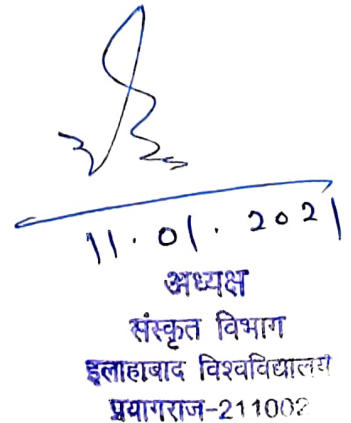 11.01.2021
अध्यक्ष
संस्कृत विभाग
इलाहाबाद विश्वविद्यालय
प्रयागराज-211002